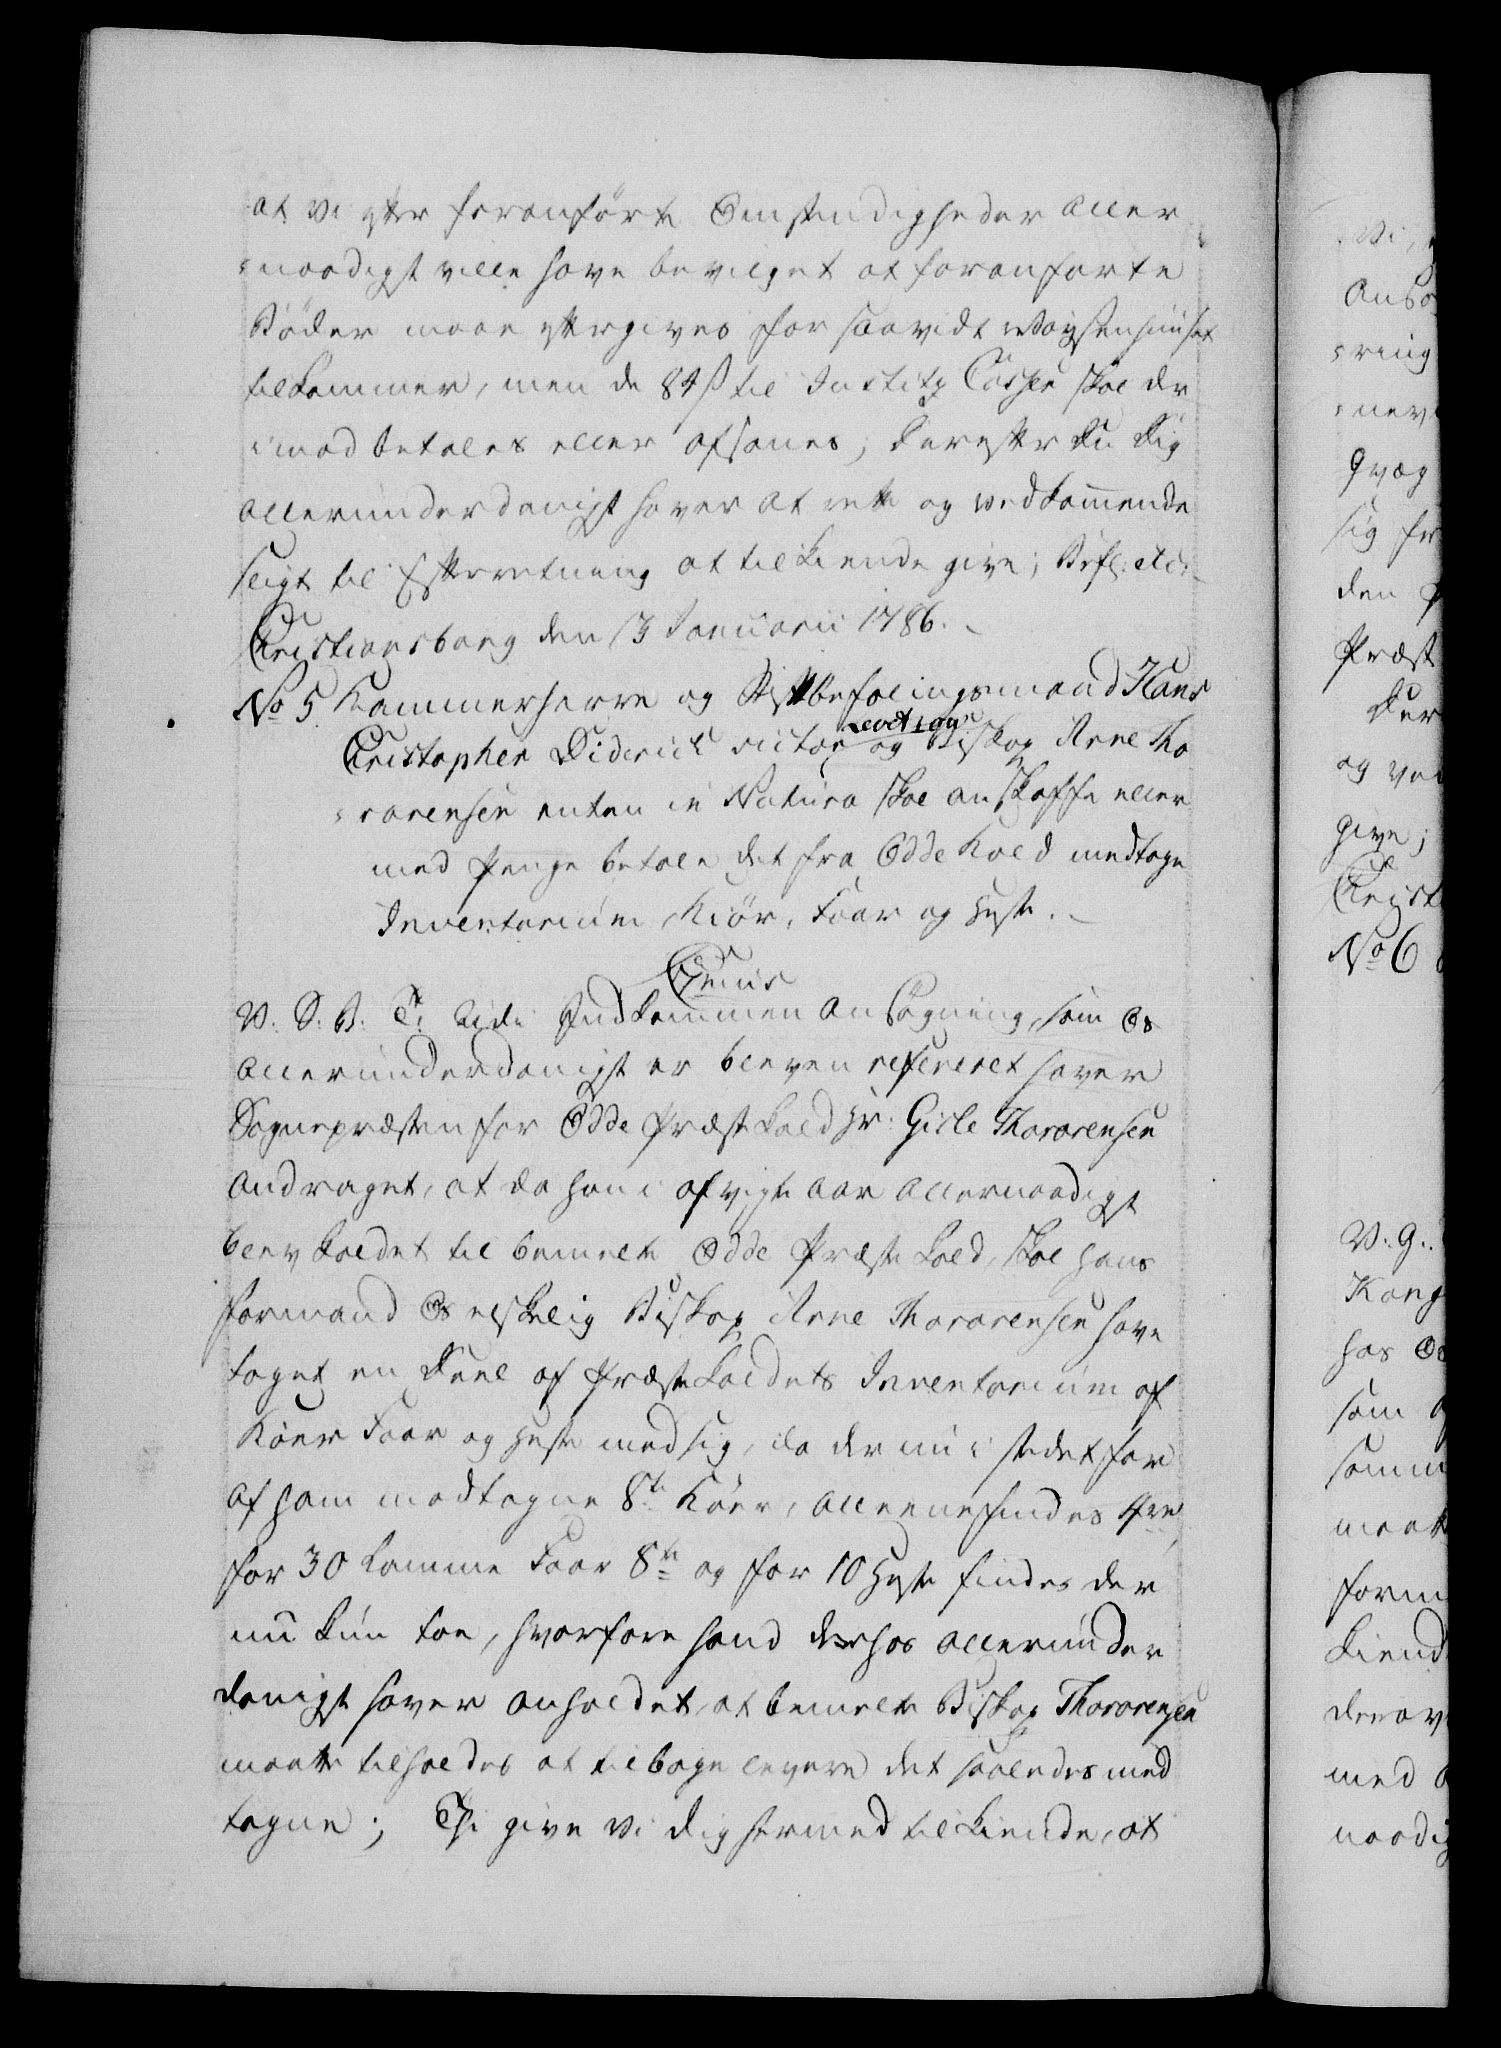 at vi efter foranførte Omstendigheder Aller
=naadigst ville have bevilget at foranførte
Bøder maae eftergives for saavidt Waÿsenhuuset
tilkommer, men de 84 ß til Justitz Cassen skal der
imod betales eller afsones; Derefter Du Dig
allerunderdanigst haver at rette og vedkommende
sligt til Efterretning at tilkiende give; Befl: etc:
Christiansborg den 13 Januarii 1786.
No 5. Kammerherre og Stiftbefalingsmand Hans
Christopher Diderich Victor Levetzow og Biskop Arne Tho
=rarensen enten in Natura skal anskaffe eller
med Penge betale det fra Odde Kald medtagne
Inventarium, Kiør, Faar og Heste.
V. S. B. T. Af di Indkommen Ansøgning, som Os
allerunderdanigst er bleven refereret haver
Sognepræsten for Odde Præstekald Hr: Gisle Thorarensen
andraget, at da han i afvigte Aar Allernaadigst
blev kaldet til bemelte Odde Præstekald, skal hans
Formand Os elskelig Biskop Arne Thorarensen have
taget en Deel af Præstekaldets Inventarium af
Kiøer Faar og Heste med sig, da der nu i stedet for
af ham modtagne 8te Kiøer, alleene findes 4re,
for 30 Lamme Faar 8te og for 10 Heste findes der
nu kun toe, hvorfore hand derhos allerunder
danigst haver anholdet, at bemelte Biskop Thorarensen
maatte tilholdes at tilbage levere det saaledes med
tagne; Thi give Vi Dig hermed tilkiende, at